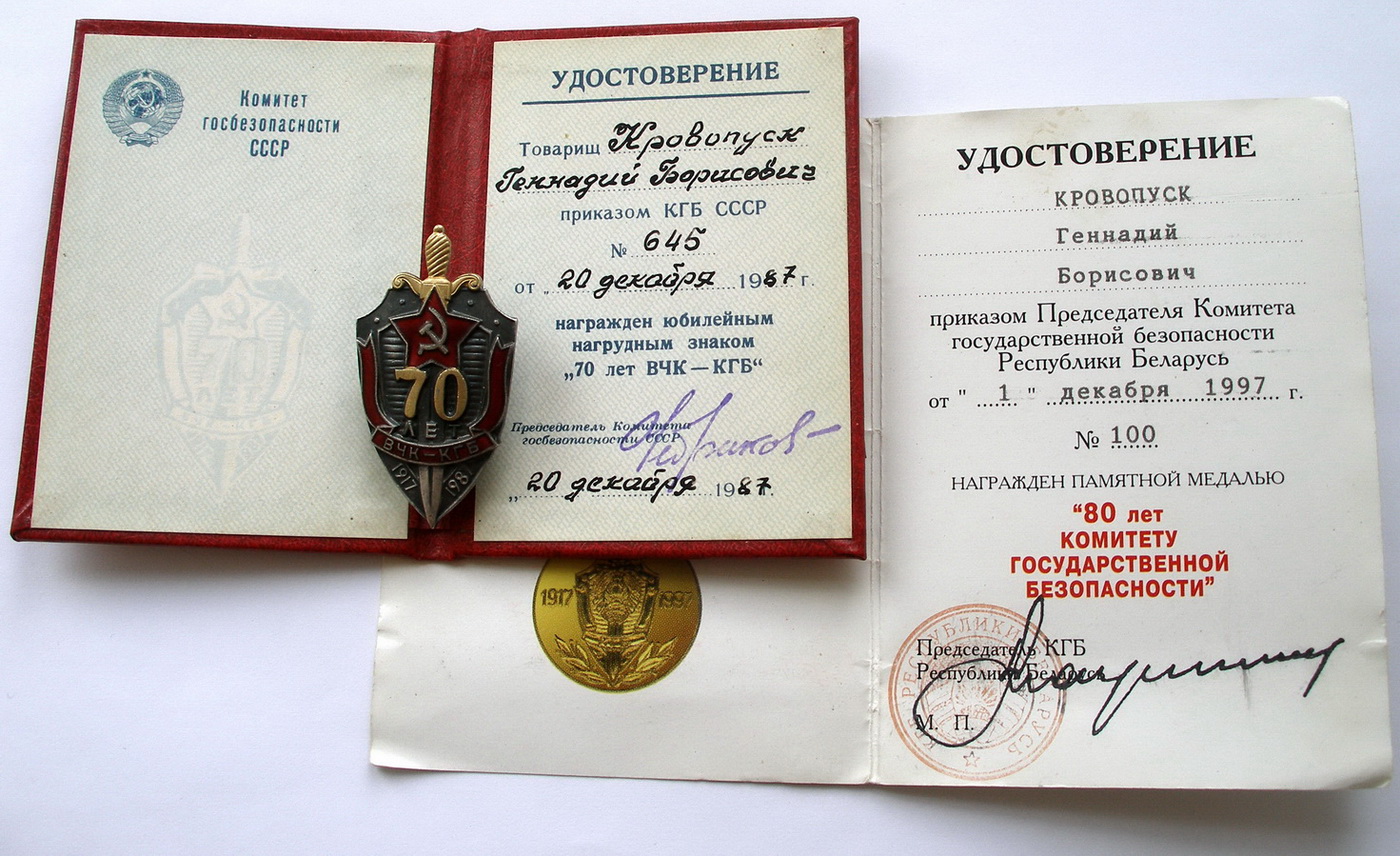 Комитет
госбезопасности
СССР
УДОСТОВЕРЕНИЕ
Товарищ Кровопуск
Геннадий Борисович
приказом КГБ СССР
№ 645
от „ 20 декабря 1987 г.
награжден юбилейным
нагрудным знаком
„70 лет ВЧК—КГБ“
Председатель Комитета
госбезопасности СССР
„ 20 декабря 1987 г.
70
ЛЕТ
ВЧК-КГБ
1917 198
1917 1997
УДОСТОВЕРЕНИЕ
КРОВОПУСК
Геннадий
Борисович
приказом Председателя Комитета
государственной безопасности
Республики Беларусь
от " 1 " декабря 1997 г.
№ 100
НАГРАЖДЕН ПАМЯТНОЙ МЕДАЛЬЮ
“80 лет
КОМИТЕТУ
ГОСУДАРСТВЕННОЙ
БЕЗОПАСНОСТИ”
Председатель КГБ
Республики Беларусь
М. П.
КГБ РЕСПУБЛИКИ БЕЛАРУСЬ